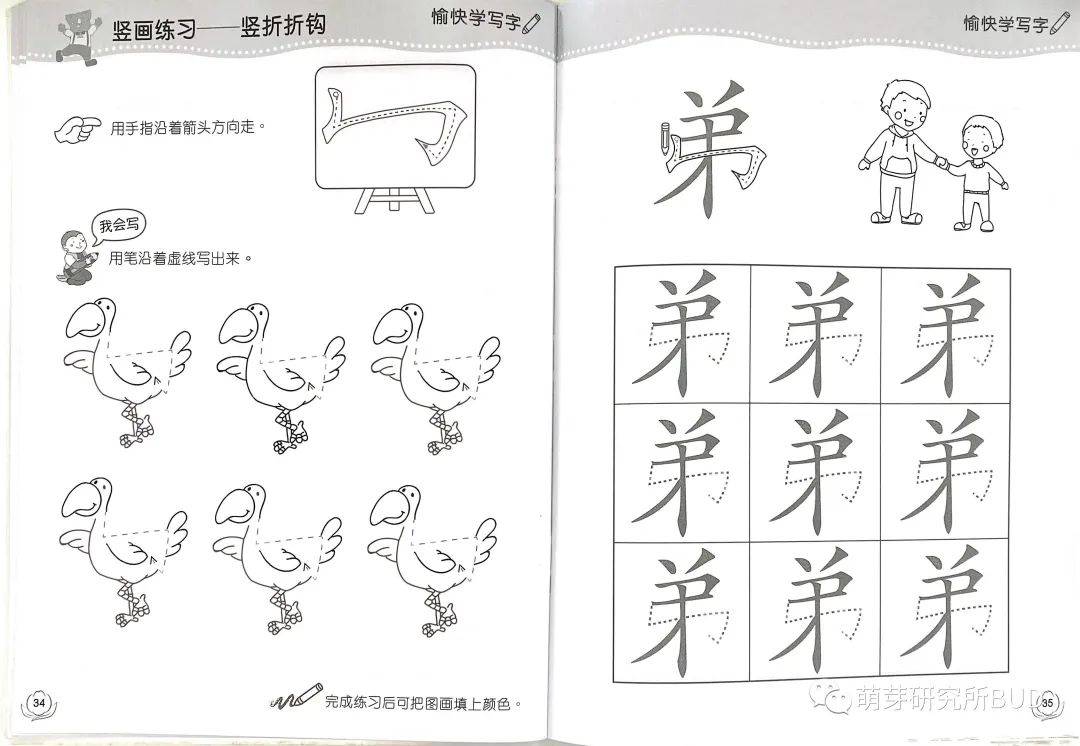 竖画练习——竖折折钩
愉快学写字
用手指沿着箭头方向走。
我会写
用笔沿着虚线写出来。
完成练习后可把图画填上颜色。
34
愉快学写字
弟
弟 弟 弟
弟 弟 弟
弟 弟 弟
萌芽研究所BUD
35